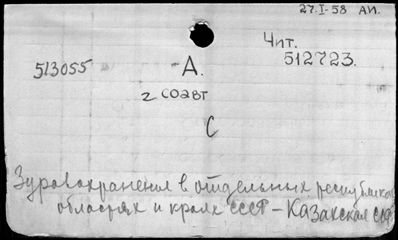 27.I-58 АИ.
Чит.
513055 А. 512723.
2 соавт
С
Здравоохранения в отдельных республиках
областях и краях СССР - Казахская ССР